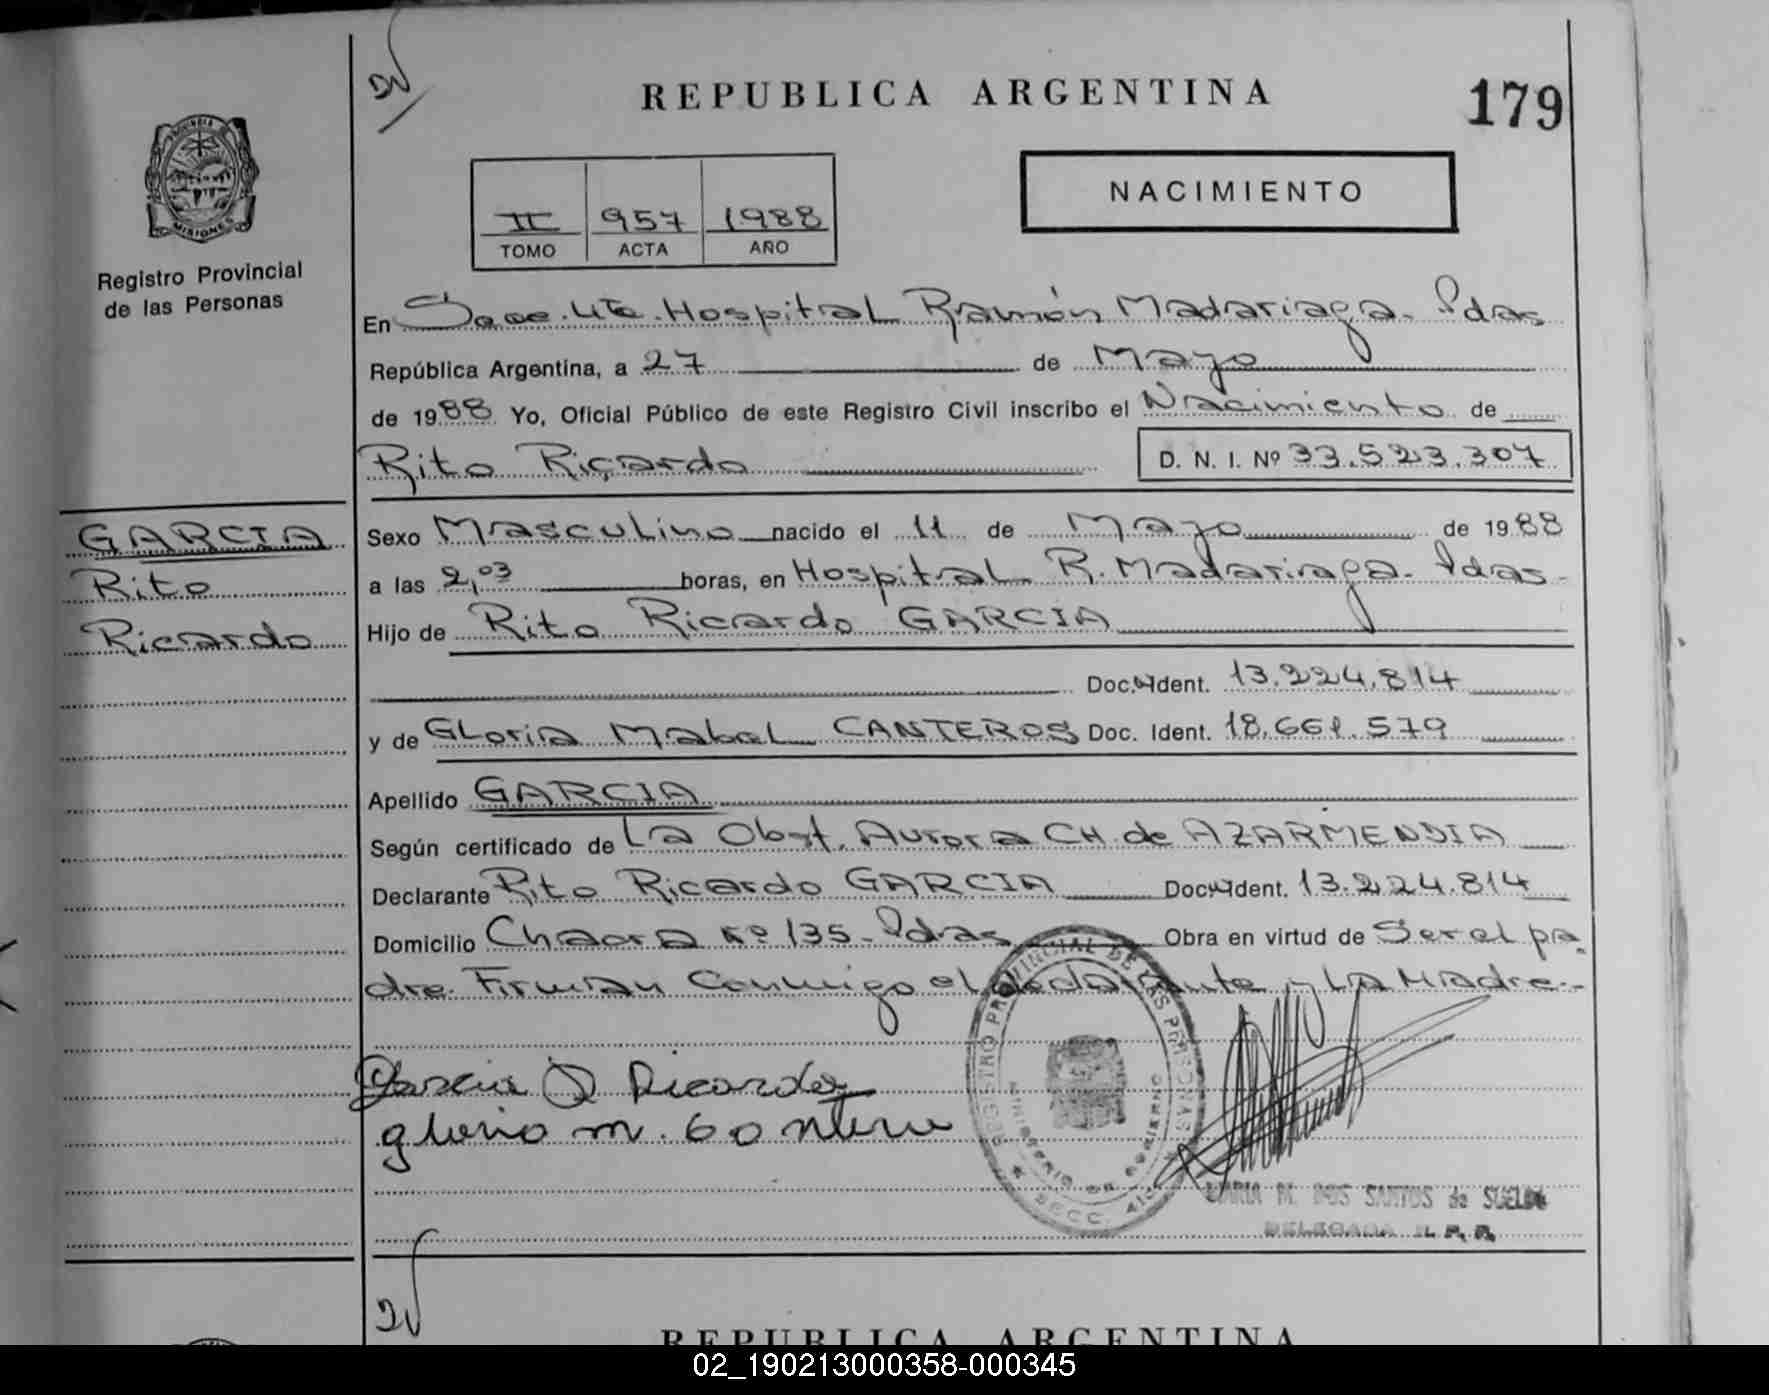 REPUBLICA ARGENTINA
179
NACIMIENTO
II 957 1988
TOMO ACTA AÑO
PROVINCIA DE
MISIONES
Registro Provincial
de las Personas
En Secc. 4ta. Hospital Ramón Madariaga. Pdas
República Argentina, a 27 de Mayo
de 1988 Yo, Oficial Público de este Registro Civil inscribo el Nacimiento de
Rito Ricardo
D. N. I. Nº 33.523.307
GARCIA
Rito
Ricardo
Sexo Masculino nacido el 11 de Mayo de 1988
a las 2,03 horas, en Hospital R. Madariaga. Pdas.
Hijo de Rito Ricardo GARCIA
Doc. Ident. 13.224.814
y de Gloria Mabel CANTEROS Doc. Ident. 18.661.579
Apellido GARCIA
Según certificado de La Obst. Aurora CH. de AZARMENDIA
Declarante Rito Ricardo GARCIA Doc. Ident. 13.224.814
Domicilio Chacra Nº 135 - Pdas Obra en virtud de Ser el pa
dre. Firman Conmigo el declarante y La Madre.-
REGISTRO PROVINCIAL DE LAS PERSONAS
MINISTERIO DE GOBIERNO
SECC. 4ta
Garcia R Ricardo
gloria m. Canteros
MARIA M. DOS SANTOS de SUELDO
DELEGADA R. P. P.
REPUBLICA ARGENTINA
02_190213000358-000345